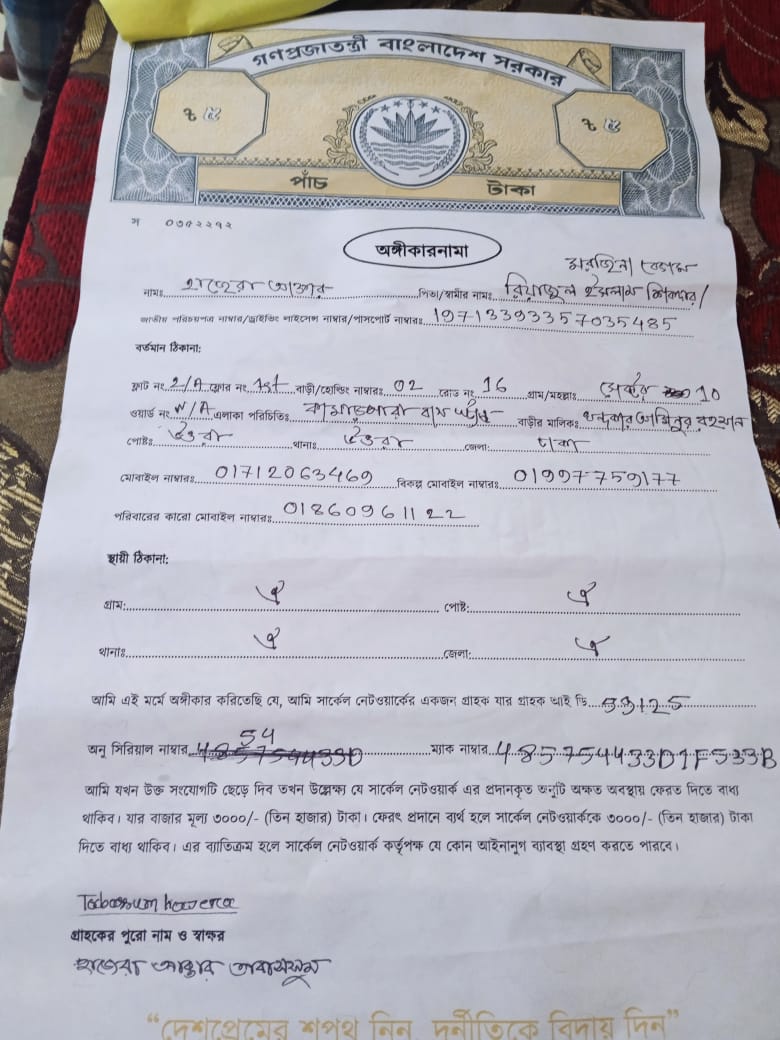 গণপ্রজাতন্ত্রী বাংলাদেশ সরকার
৳ ৫ ৳ ৫
পাঁচ টাকা
গ ০৩৫২২৭২
অঙ্গীকারনামা
বেগম
নামঃ হাজেরা আক্তার পিতা/স্বামীর নামঃ রিয়াজুল ইসলাম
জাতীয় পরিচয়পত্র নাম্বার/ড্রাইভিং লাইসেন্স নাম্বার/পাসপোর্ট নাম্বারঃ 19713393357035485
বর্তমান ঠিকানা:
ফ্লাট নং 2/A ফ্লোর নং 1st বাড়ী/হোল্ডিং নাম্বারঃ 02 রোড নং 16 গ্রাম/মহল্লাঃ সেক্টর 10
ওয়ার্ড নং N/A এলাকা পরিচিতিঃ কামারপারা বাস বাড়ীর মালিকঃ রহমান
পোষ্টঃ উত্তরা থানাঃ উত্তরা জেলা: ঢাকা
মোবাইল নাম্বারঃ 01712063469 বিকল্প মোবাইল নাম্বারঃ 01997759177
পরিবারের কারো মোবাইল নাম্বারঃ 01860961122
স্থায়ী ঠিকানা:
গ্রাম: ঐ পোষ্ট: ঐ
থানাঃ ঐ জেলা: ঐ
আমি এই মর্মে অঙ্গীকার করিতেছি যে, আমি সার্কেল নেটওয়ার্কের একজন গ্রাহক যার গ্রাহক আই ডি 53125
54
অনু সিরিয়াল নাম্বার 485754433D ম্যাক নাম্বার 485754433D1F533B
আমি যখন উক্ত সংযোগটি ছেড়ে দিব তখন উল্লেক্ষ্য যে সার্কেল নেটওয়ার্ক এর প্রদানকৃত অনুটি অক্ষত অবস্থায় ফেরত দিতে বাধ্য
থাকিব। যার বাজার মূল্য ৩০০০/- (তিন হাজার) টাকা। ফেরৎ প্রদানে ব্যর্থ হলে সার্কেল নেটওয়ার্ককে ৩০০০/- (তিন হাজার) টাকা
দিতে বাধ্য থাকিব। এর ব্যাতিক্রম হলে সার্কেল নেটওয়ার্ক কর্তৃপক্ষ যে কোন আইনানুগ ব্যাবস্থা গ্রহণ করতে পারবে।
Tabassum hazera
গ্রাহকের পুরো নাম ও স্বাক্ষর
হাজেরা আক্তার তাবাসসুম
“দেশপ্রেমের শপথ নিন, দুর্নীতিকে বিদায় দিন”